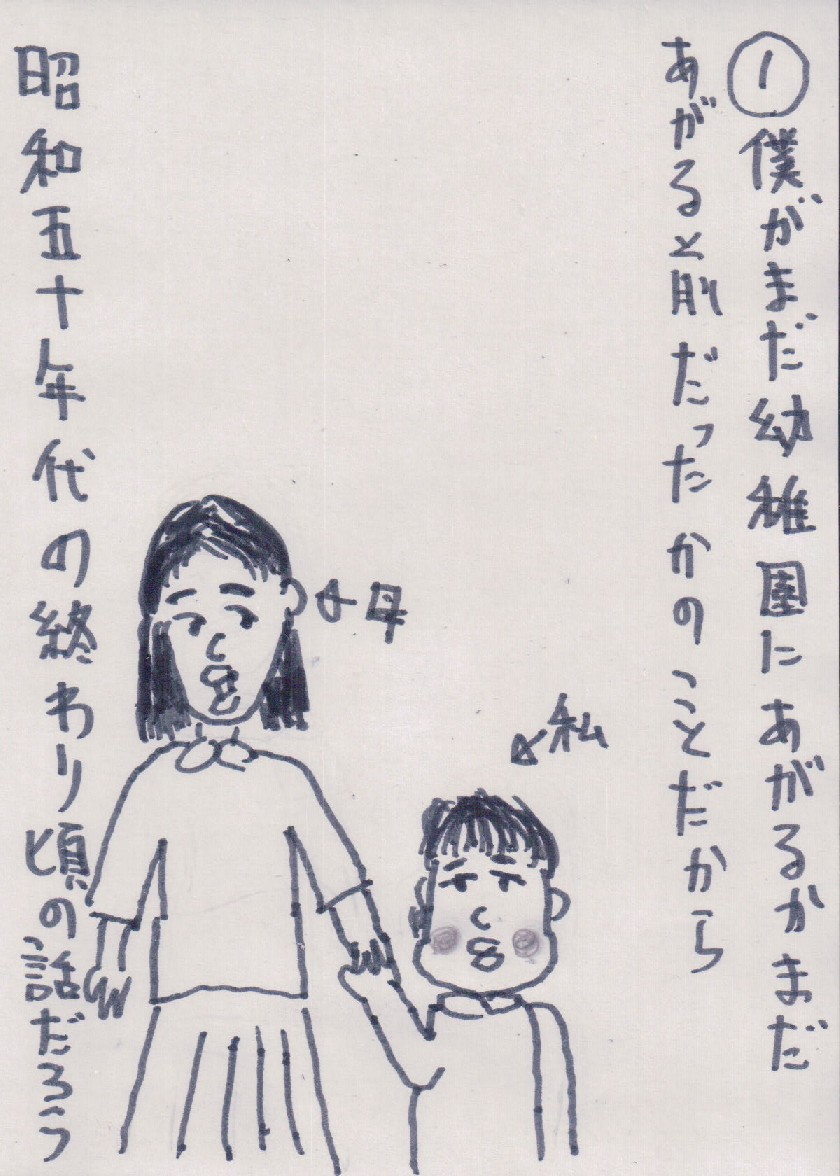 ①僕がまだ幼稚園にあがるかまだ
あがると前だったかのことだから
昭和五十年代の終わり頃の話だろう
←母
←私